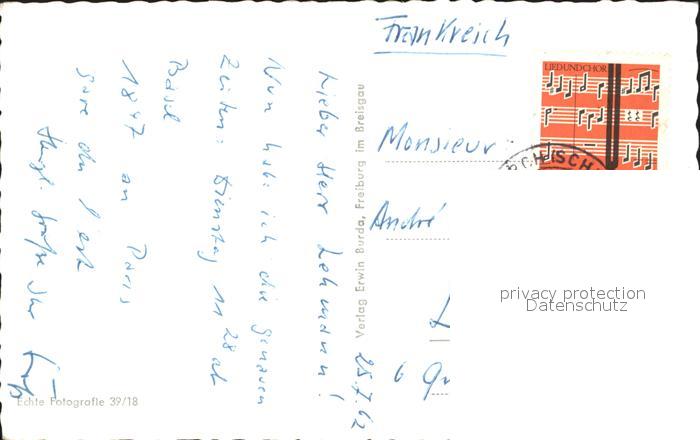 Frankreich
LIED UND CHOR
Monsieur
André
privacy protection
Datenschutz
Verlag Erwin Burda, Freiburg im Breisgau
25.7.62
Lieber Herr Lehmann!
Nun hab ich die genauen
Zeiten: Dienstag 11 28 ab
Basel
18 47 an Paris
Gare de l'est
Herzl. Grüße Ihr
Echte Fotografie 39/18